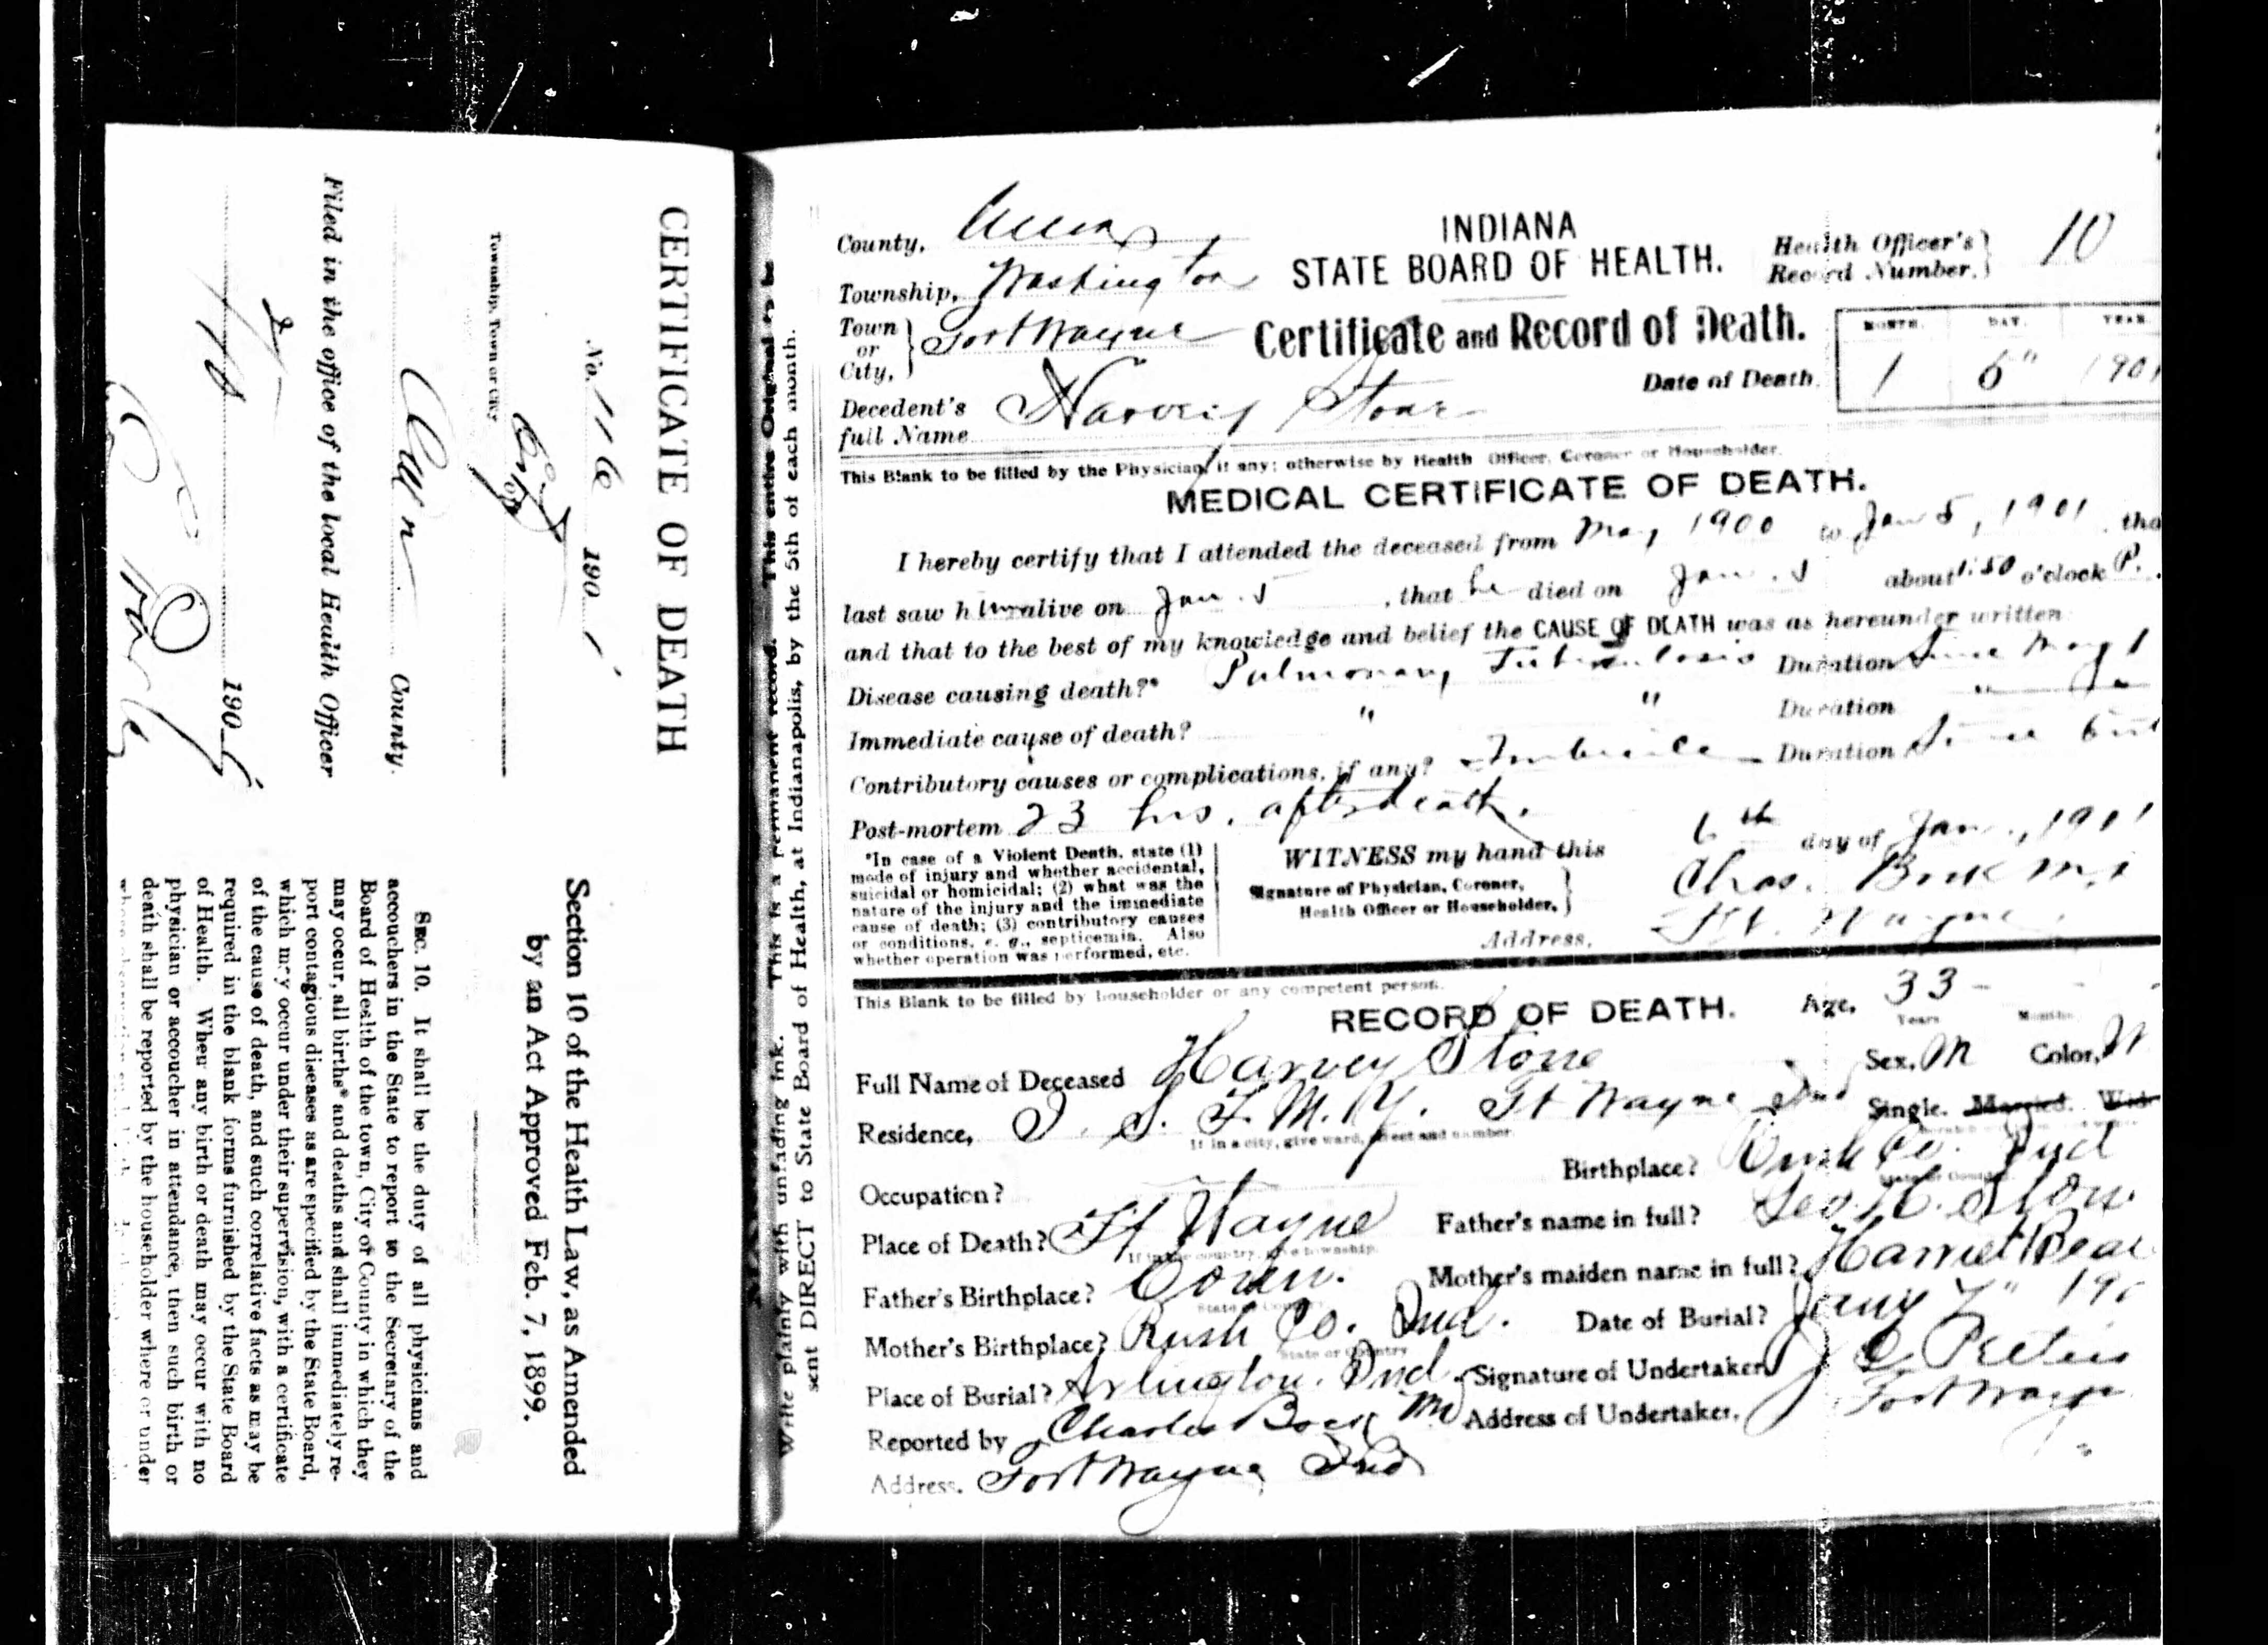 CERTIFICATE OF DEATH
No. 116 190 1
City
Township, Town or City
Allen County.
Filed in the office of the local Health Officer
190
Section 10 of the Health Law, as Amended
by an Act Approved Feb. 7, 1899.
SEC. 10. It shall be the duty of all physicians and
accouchers in the State to report to the Secretary of the
Board of Health of the town, City or County in which they
may occur, all births* and deaths and shall immediately re-
port contagious diseases as are specified by the State Board,
which may occur under their supervision, with a certificate
of the cause of death, and such correlative facts as may be
required in the blank forms furnished by the State Board
of Health. When any birth or death may occur with no
physician or accoucher in attendance, then such birth or
death shall be reported by the householder where or under
Write plainly with unfading ink. This is a permanent record. This entire Original to be
sent DIRECT to State Board of Health, at Indianapolis, by the 5th of each month.
County, Allen
INDIANA
STATE BOARD OF HEALTH.
Health Officer's Record Number, 10
Township, Washington
Town or City, Fort Wayne
Certificate and Record of Death.
MONTH. DAY. YEAR
Date of Death. 1 6" 1901
Decedent's full Name Harvey Stone
This Blank to be filled by the Physician, if any; otherwise by Health Officer, Coroner or Householder.
MEDICAL CERTIFICATE OF DEATH.
I hereby certify that I attended the deceased from May 1900 to Jan 5, 1901, tha
last saw him alive on Jan. 5, that he died on Jan. 5 about 1:50 o'clock P.
and that to the best of my knowledge and belief the CAUSE OF DEATH was as hereunder written
Disease causing death?* Pulmonary Tuberculosis Duration Since May 1
Immediate cause of death? " " Duration "
Contributory causes or complications, if any? Imbecile Duration Since birt
Post-mortem 23 hrs. after death.
*In case of a Violent Death, state (1)
mode of injury and whether accidental,
suicidal or homicidal; (2) what was the
nature of the injury and the immediate
cause of death; (3) contributory causes
or conditions, e. g., septicemia. Also
whether operation was performed, etc.
WITNESS my hand this 6th day of Jan., 1901
Signature of Physician, Coroner, Health Officer or Householder, Chas. Bock M.D
Address, Ft. Wayne
This Blank to be filled by householder or any competent person.
RECORD OF DEATH.
Age, 33 - -
Years Months
Full Name of Deceased Harvey Stone
Sex, M Color, W
Residence, I. S. F. M. Y. Ft Wayne Ind
If in a city, give ward, street and number.
Single. Married. Wid
Occupation?
Birthplace? Rush Co. Ind
Place of Death? Ft Wayne
If in the country, give township.
Father's name in full? Geo H. Stone
Father's Birthplace?
State or Country
Mother's maiden name in full? Harriet
Mother's Birthplace? Rush Co. Ind.
State or Country
Date of Burial? Jany 7" 190
Place of Burial? Arlington, Ind.
Signature of Undertaker, J C Peltier
Reported by Charles Bock MD
Address of Undertaker, Fort Wayne
Address. Fort Wayne Ind